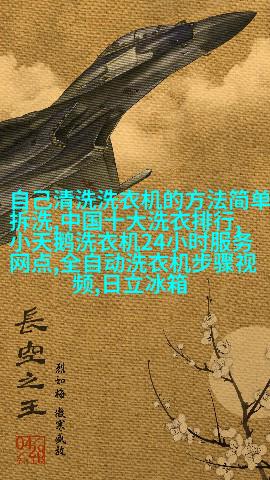 自己清洗洗衣机的方法简单
拆洗,中国十大洗衣排行,
小天鹅洗衣机24小时服务
网点,全自动洗衣机步骤视
频,日立冰箱
長空之王
烈如梅 傲寒盛放
04
28